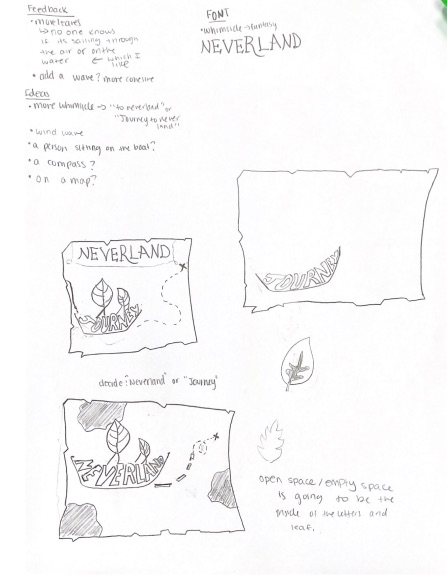 Feedback
• more leaves
↳ no one knows
if its sailing through
the air or on the
water ← which I
like
• add a wave? more concise
Ideas
• more whimsicle → "to neverland" or
"Journey to never
land"
• wind wave
• a person sitting on the boat?
• a compass?
• on a map?
FONT
• whimsicle → fantasy
NEVERLAND
JOURNEY
NEVERLAND
JOURNEY
decide: "Neverland" or "Journey"
NEVERLAND
open space/empty space
is going to be the
inside of the letters and
leaf.